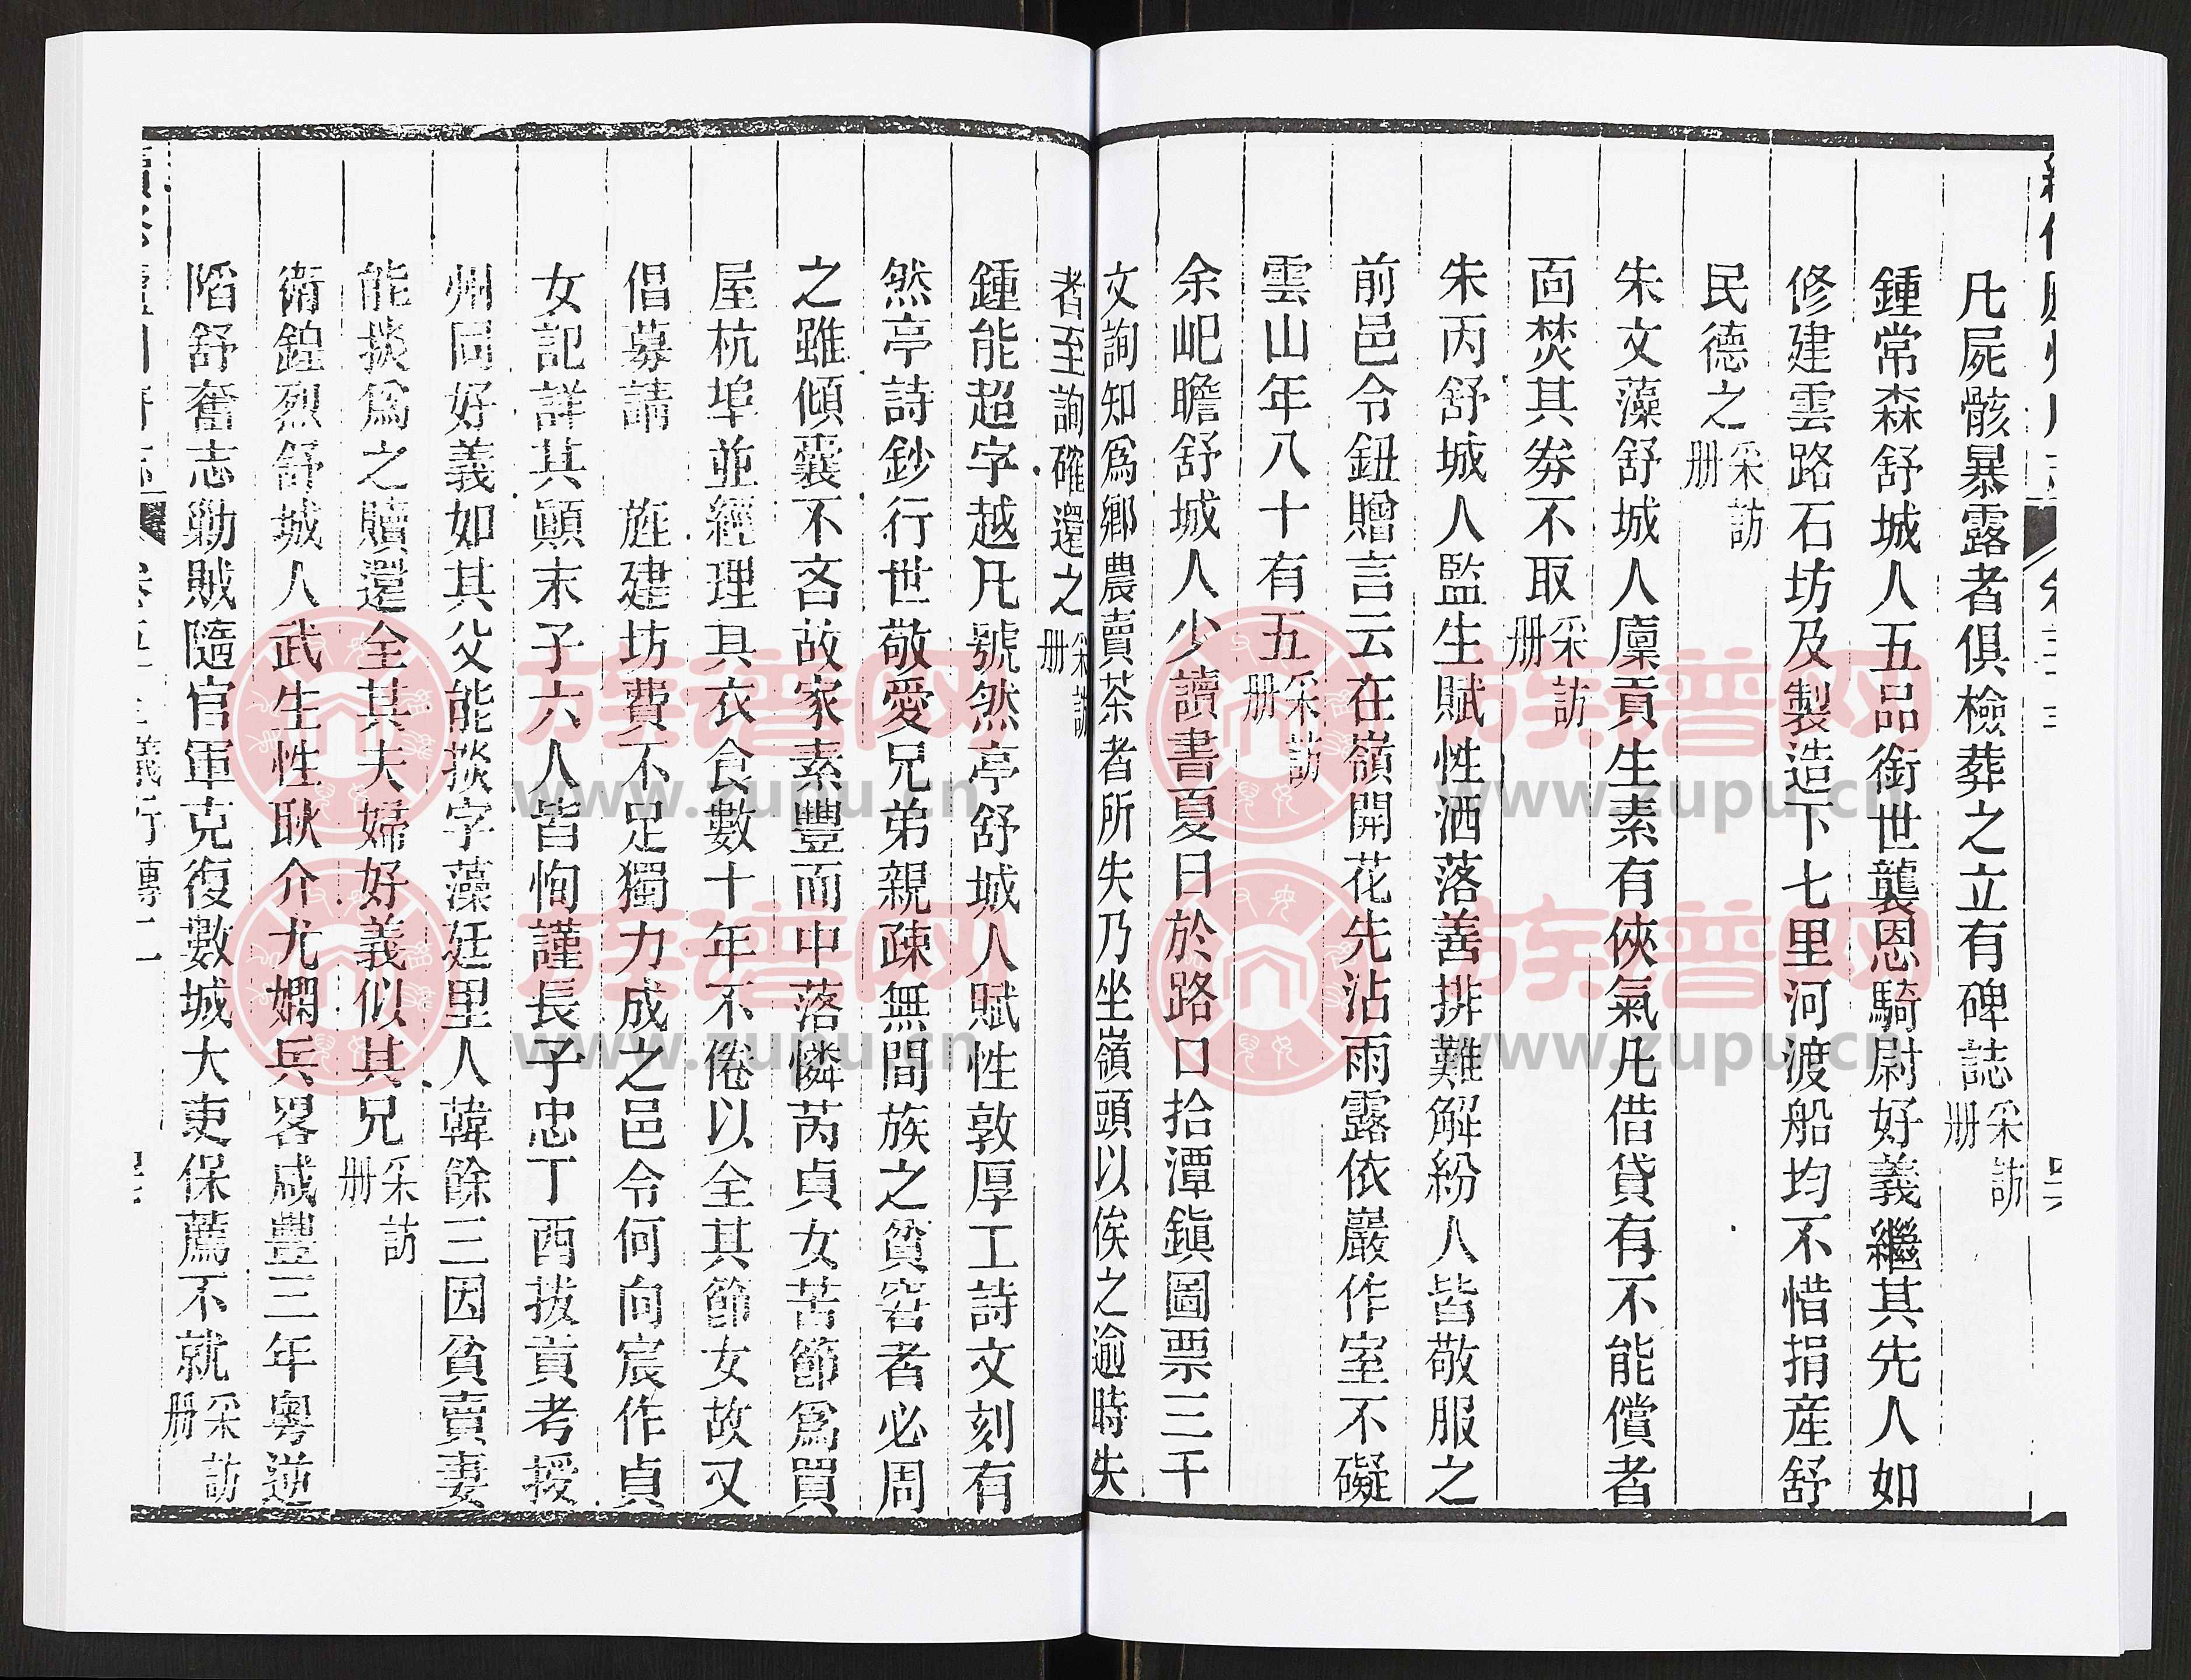 凡屍骸暴露者俱檢葬之立有碑誌采訪冊
鍾常森舒城人五品銜世襲恩騎尉好義繼其先人如
修建雲路石坊及製造下七里河渡船均不惜捐産舒
民德之采訪冊
朱文藻舒城人廩貢生素有俠氣凡借貸有不能償者
面焚其券不取采訪冊
朱丙舒城人監生賦性洒落善排難解紛人皆敬服之
前邑令鈕贈言云在嶺開花先沾雨露依巖作室不礙
雲山年八十有五采訪冊
余屺瞻舒城人少讀書夏日於路口拾潭鎭圖票三千
文詢知爲鄉農賣茶者所失乃坐嶺頭以俟之逾時失
者至詢確還之采訪冊
鍾能超字越凡號然亭舒城人賦性敦厚工詩文刻有
然亭詩鈔行世敬愛兄弟親疎無間族之貧窘者必周
之雖傾囊不吝故家素豐而中落憐芮貞女苦節爲買
屋杭埠並經理其衣食數十年不倦以全其節女故又
倡募請 旌建坊費不足獨力成之邑令何向宸作貞
女記詳其顚末子六人皆恂謹長子忠丁酉拔貢考授
州同好義如其父能掞字藻廷里人韓餘三因貧賣妻
能掞爲之贖還全其夫婦好義似其兄采訪冊
衛鍠烈舒城人武生性耿介尤嫻兵畧咸豐三年粵逆
陷舒奮志勦賊隨官軍克復數城大吏保薦不就采訪冊
義行傳二
族譜网
www.zupu.cn
族譜网
www.zupu.cn
族譜网
www.zupu.cn
族譜网
www.zupu.cn